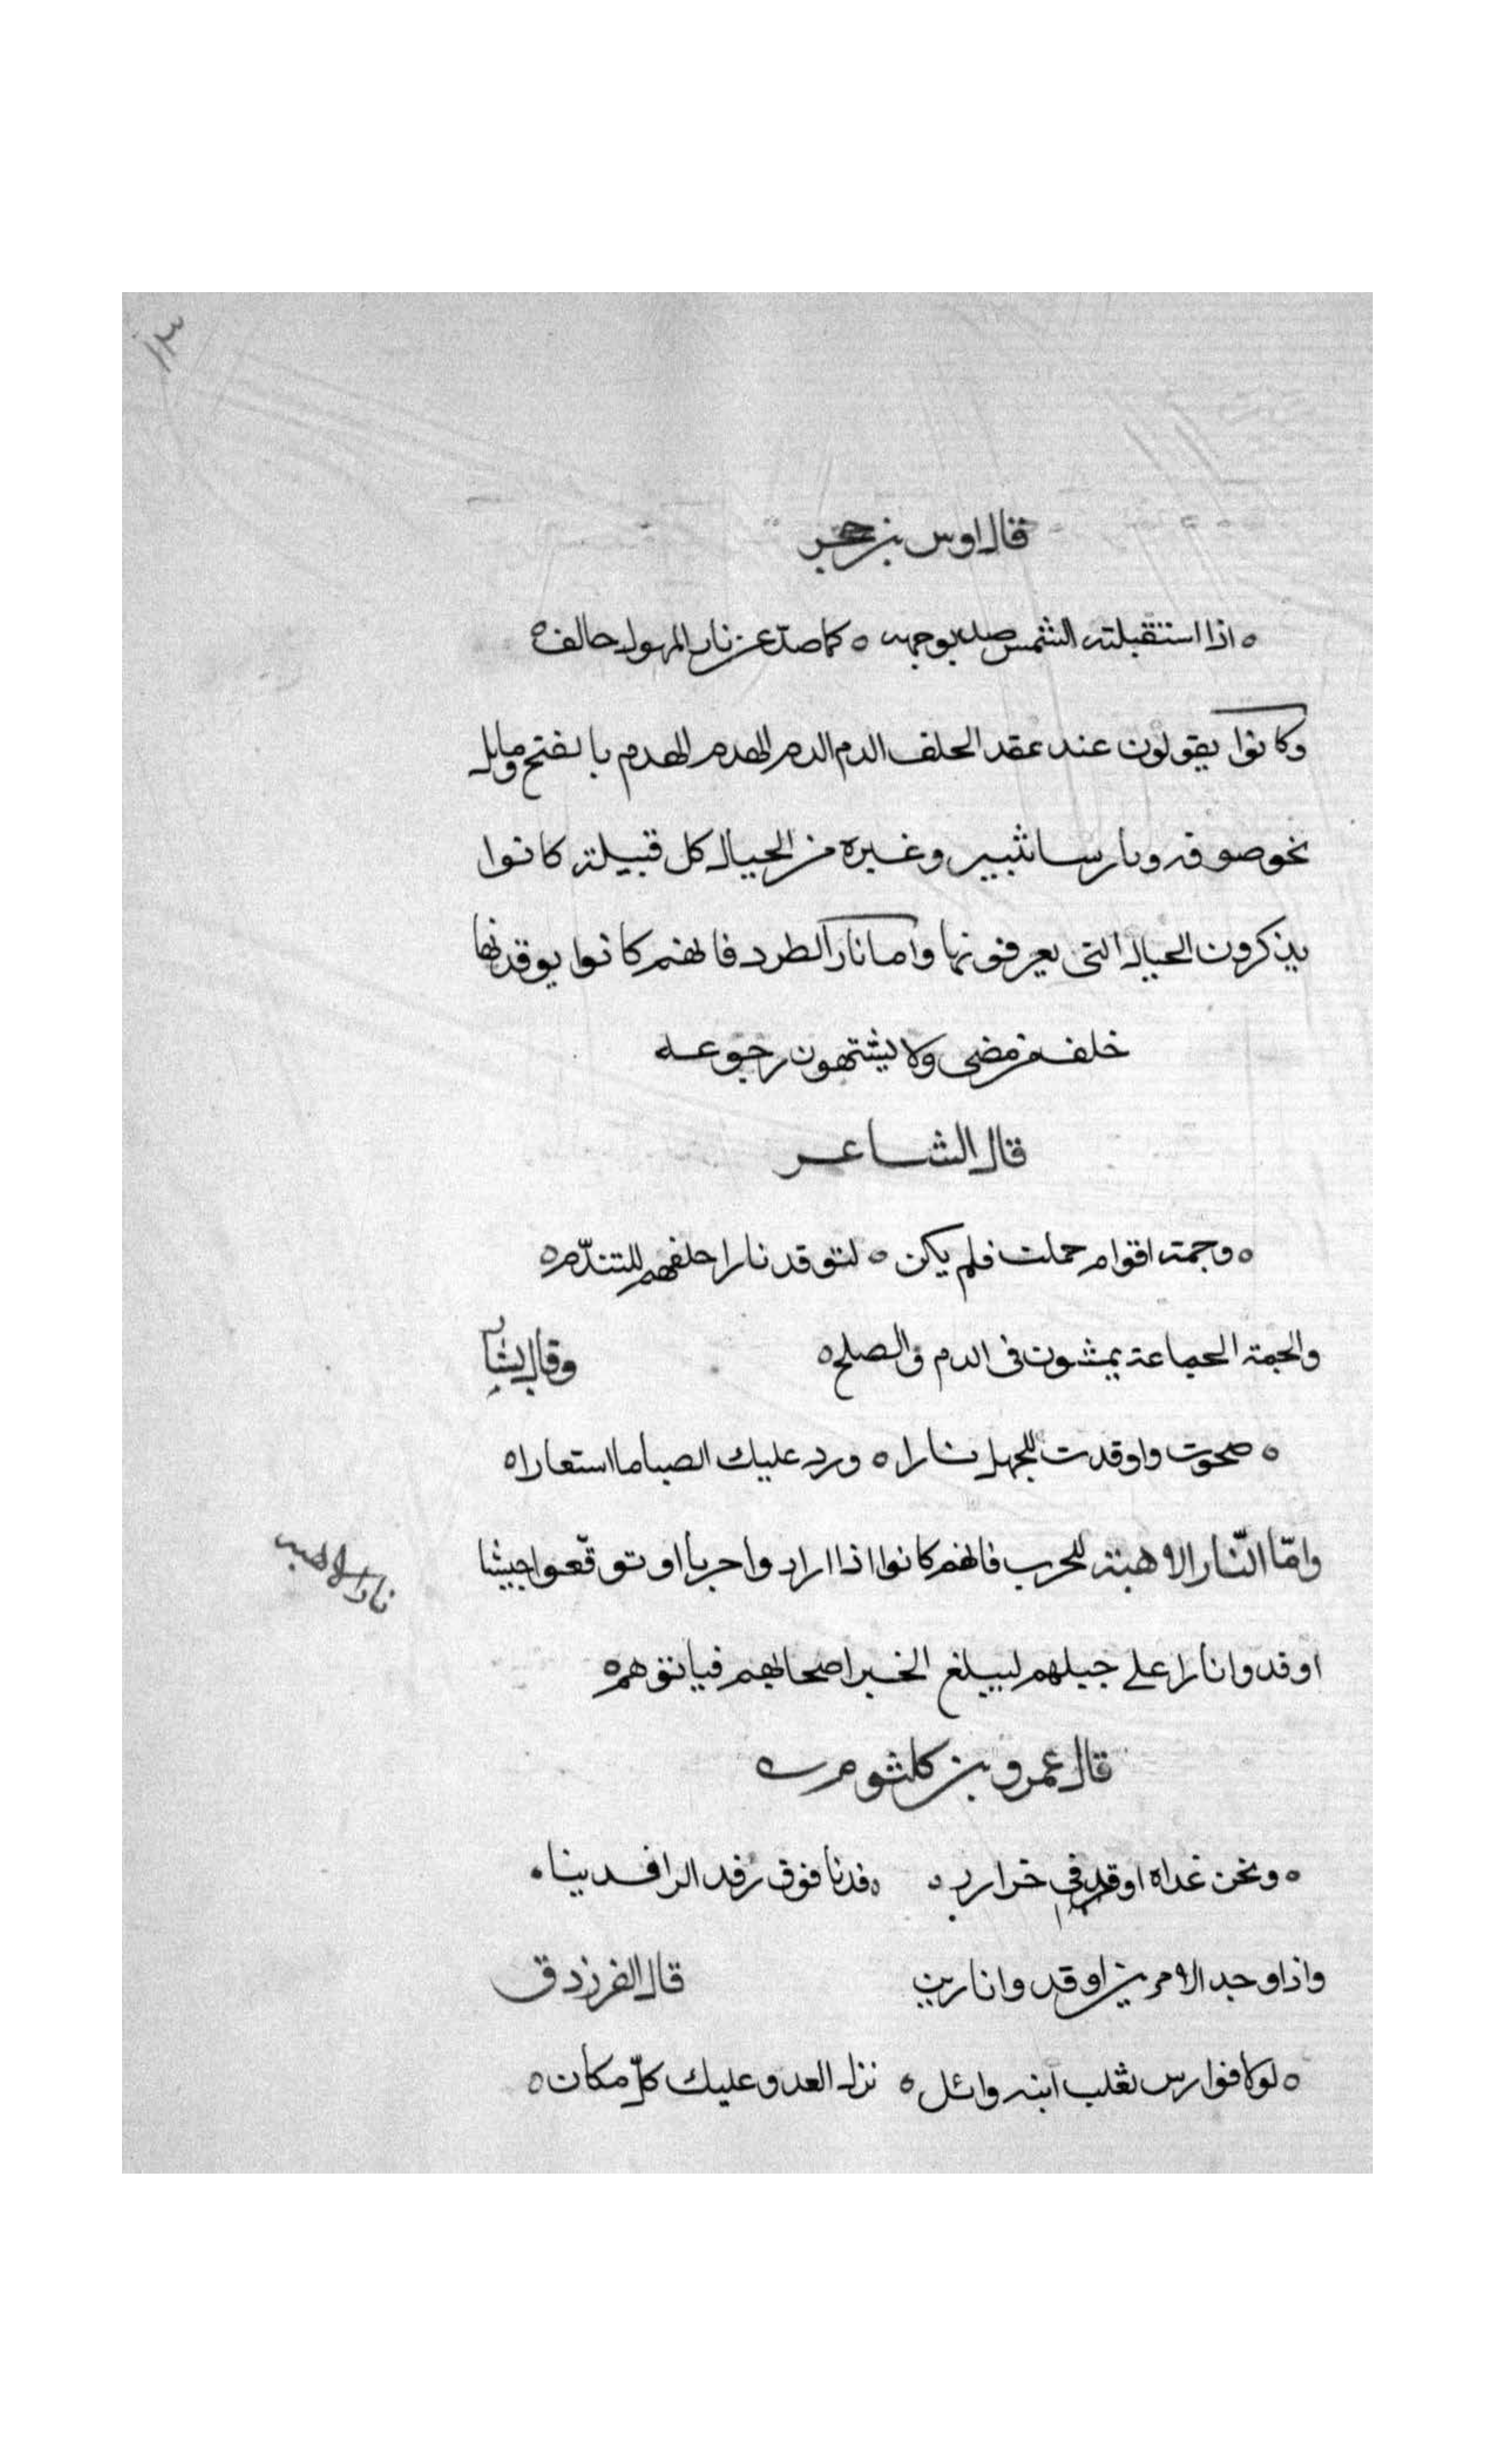 ١٣
قال اوس بن حجر
ه اذا استقبلته الشمس صد بوجهه ه كما صدّ عن نار المهول حالف ه
وكانوا يقولون عند عقد الحلف الدم الدم الهدم الهدم بالفتح ومابل
نحو صوفه وما رسا ثبير وغيره من الجبال كل قبيلة كانوا
يذكرون الجبال التى يعرفونها واما نار الطرد فانهم كانوا يوقدنها
خلف من مضى ولا يشتهون رجوعه
قال الشاعر
ه وجمة اقوام حملت فلم يكن ه لتوقد نارا خلفهم للتندّم ه
والجمة الجماعة يمشون فى الدم والصلح ه وقال بشار
ه صحوت واوقدت للجهل نارا ه ورد عليك الصبا ما استعارا ه
وامّا النّار الاهبة للحرب فانهم كانوا اذا ارادوا حربا او توقّعوا جيشا
نار الاهبه
اوقدوا نارا على جبلهم ليبلغ الخبر اصحابهم فياتوهم ه
قال عمرو بن كلثوم
ه ونحن غداة اوقد فى خزارى ه رفدنا فوق رفد الرافدينا ه
واذا وجد الامرين اوقدوا نارين قال الفرزدق
ه لولا فوارس تغلب ابنة وائل ه نزل العدو عليك كلّ مكان ه